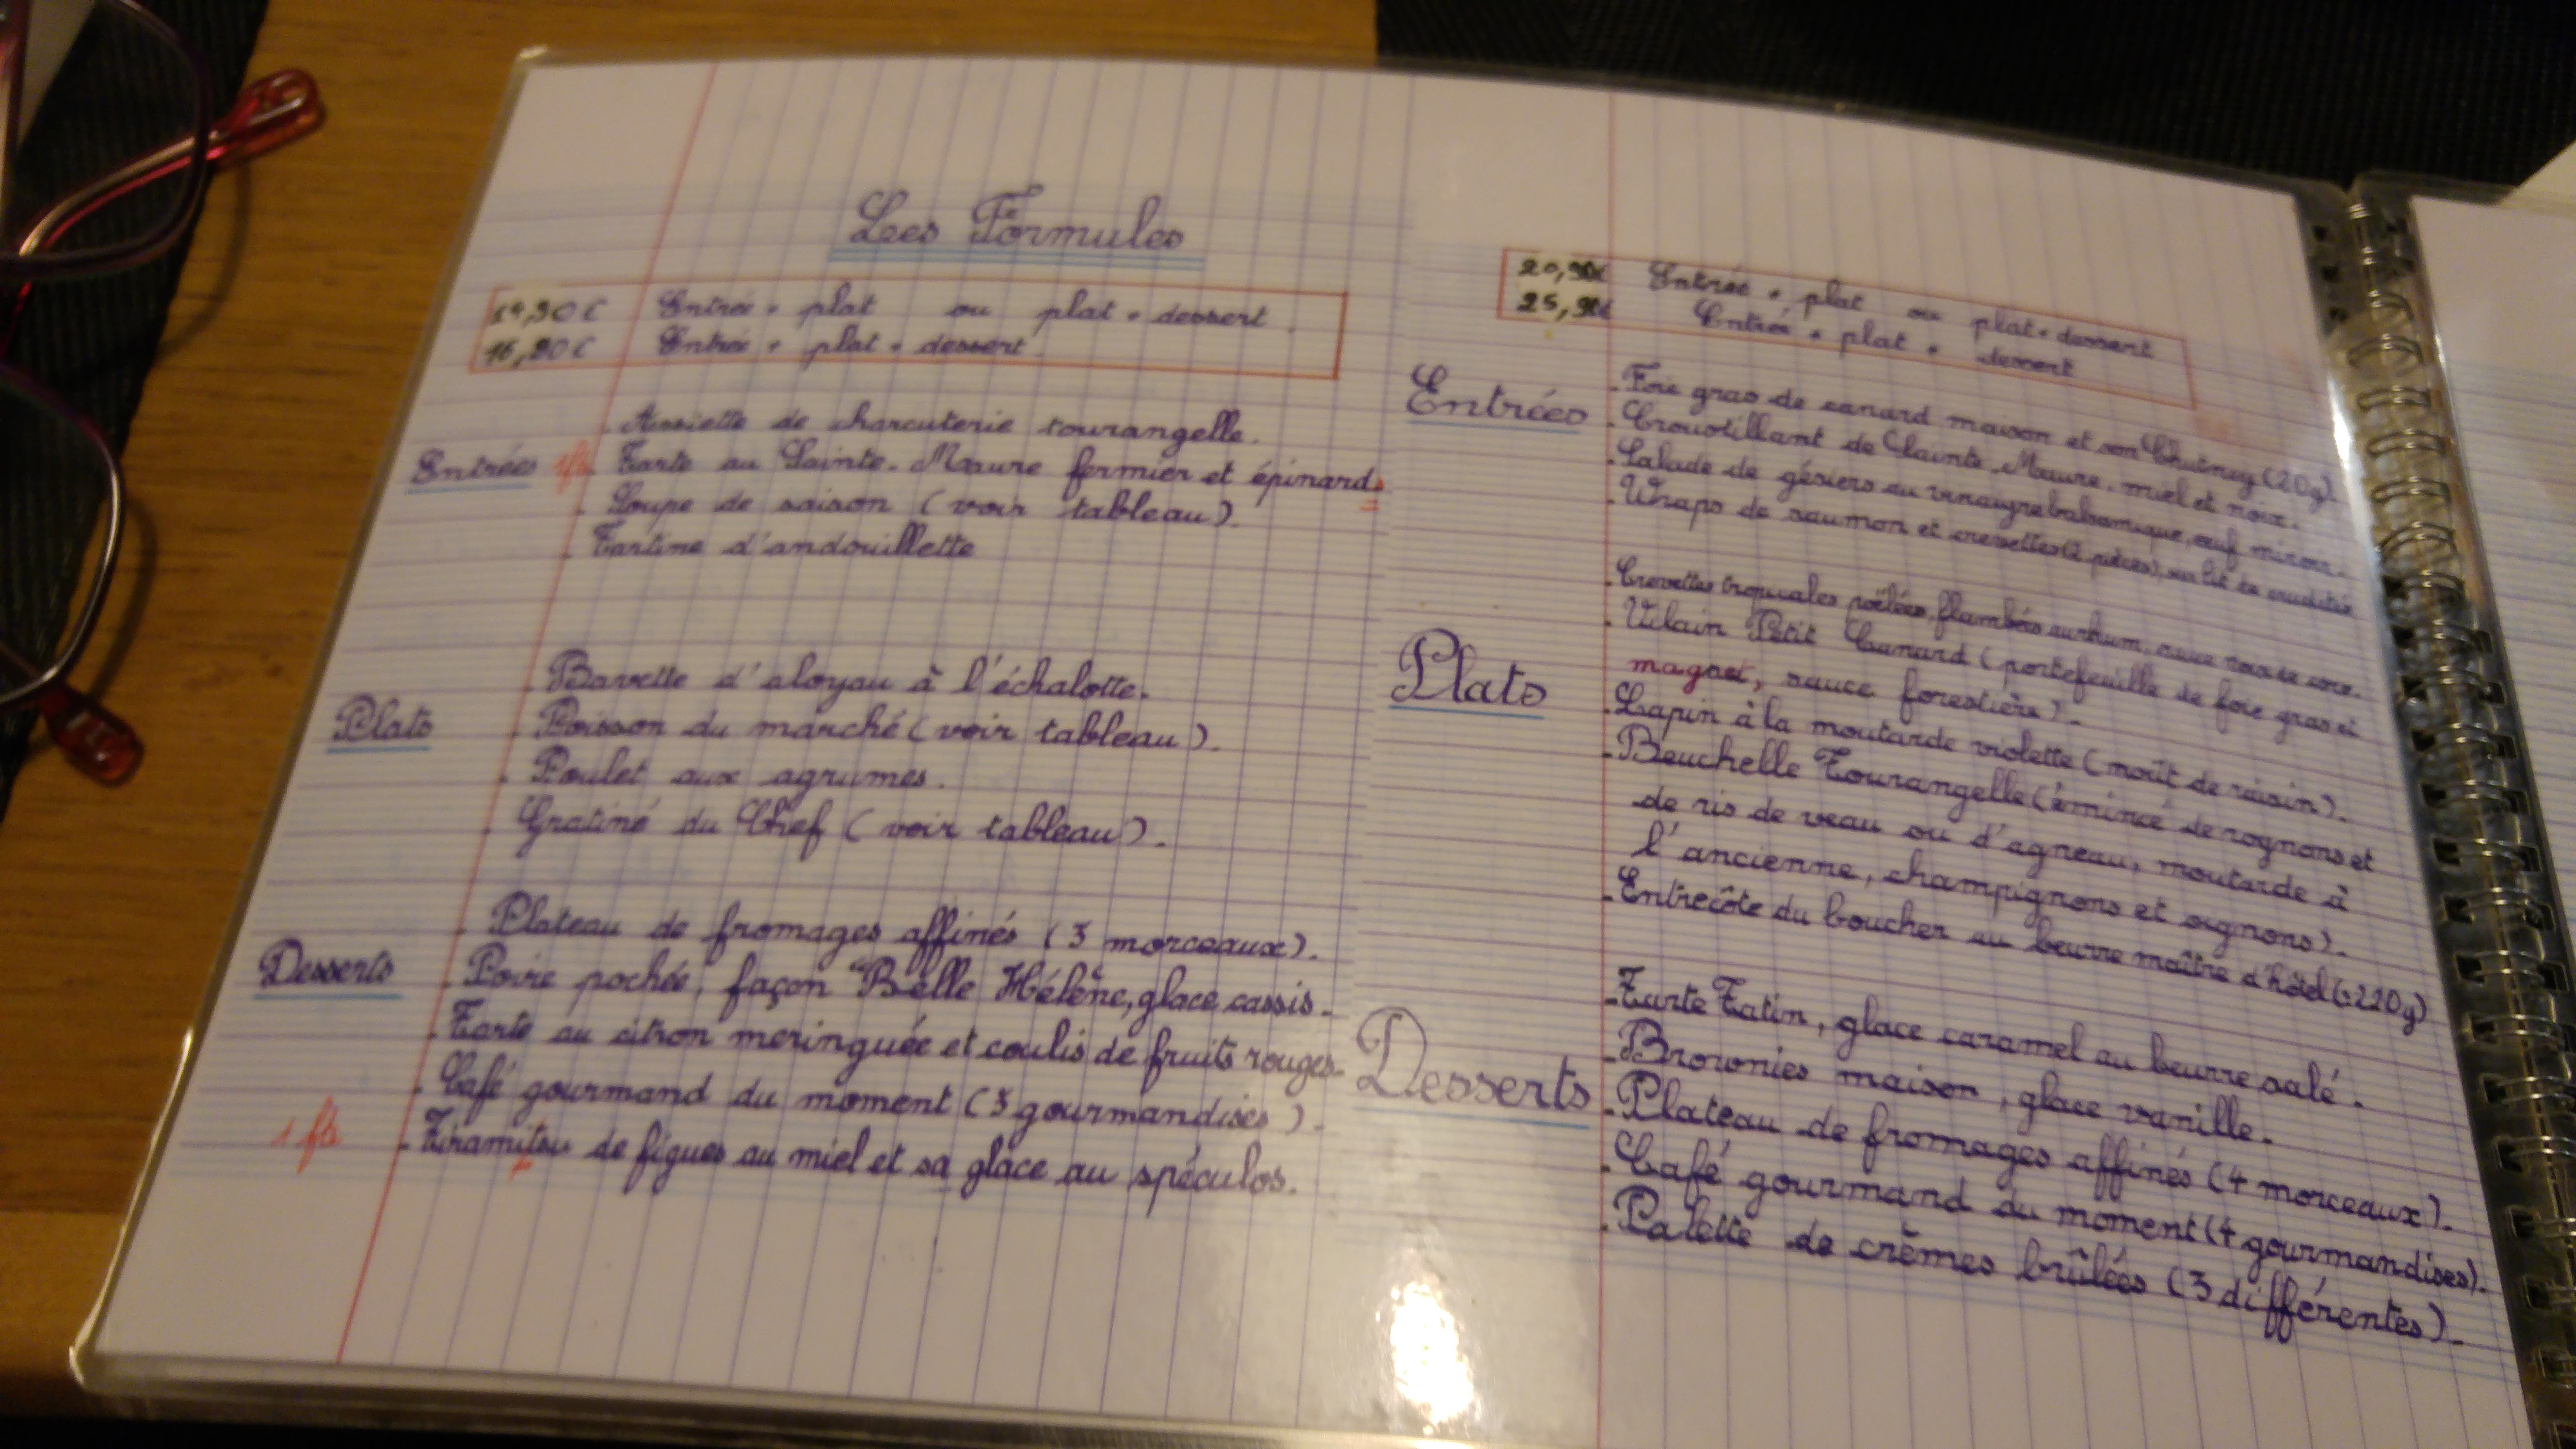 Les Formules
Entrée + plat ou plat + dessert
16,90€ Entrée + plat + dessert
Entrées
. Assiette de charcuterie tourangelle.
. Tarte au Sainte-Maure fermier et épinards
. Soupe de saison (voir tableau).
. Tartine d'andouillette
Plats
. Bavette d'aloyau à l'échalotte.
. Poisson du marché (voir tableau).
. Poulet aux agrumes.
. Gratiné du Chef (voir tableau).
Desserts
. Plateau de fromages affinés (3 morceaux).
. Poire pochée, façon Belle Hélène, glace cassis.
. Tarte au citron meringuée et coulis de fruits rouges.
. Café gourmand du moment (3 gourmandises).
1 fte
. Tiramitsu de figues au miel et sa glace au spéculos.
20,90€ Entrée + plat ou plat + dessert
25,90€ Entrée + plat + dessert
Entrées
. Foie gras de canard maison et son Chutney (20g).
. Croustillant de Sainte Maure, miel et noix.
. Salade de gésiers au vinaigre balsamique, oeuf miroir.
. Wraps de saumon et crevettes (2 pièces), sur lit de crudités
Plats
. Crevettes tropicales poêlées, flambées au rhum, sauce noix de coco.
. Vilain Petit Canard (portefeuille de foie gras et
magret, sauce forestière).
. Lapin à la moutarde violette (moût de raisin).
. Beuchelle Tourangelle (émincé de rognons et
de ris de veau ou d'agneau, moutarde à
l'ancienne, champignons et oignons).
. Entrecôte du boucher au beurre maître d'hôtel (±220g)
Desserts
. Tarte Tatin, glace caramel au beurre salé.
. Brownies maison, glace vanille.
. Plateau de fromages affinés (4 morceaux).
. Café gourmand du moment (4 gourmandises).
. Palette de crèmes brûlées (3 différentes).